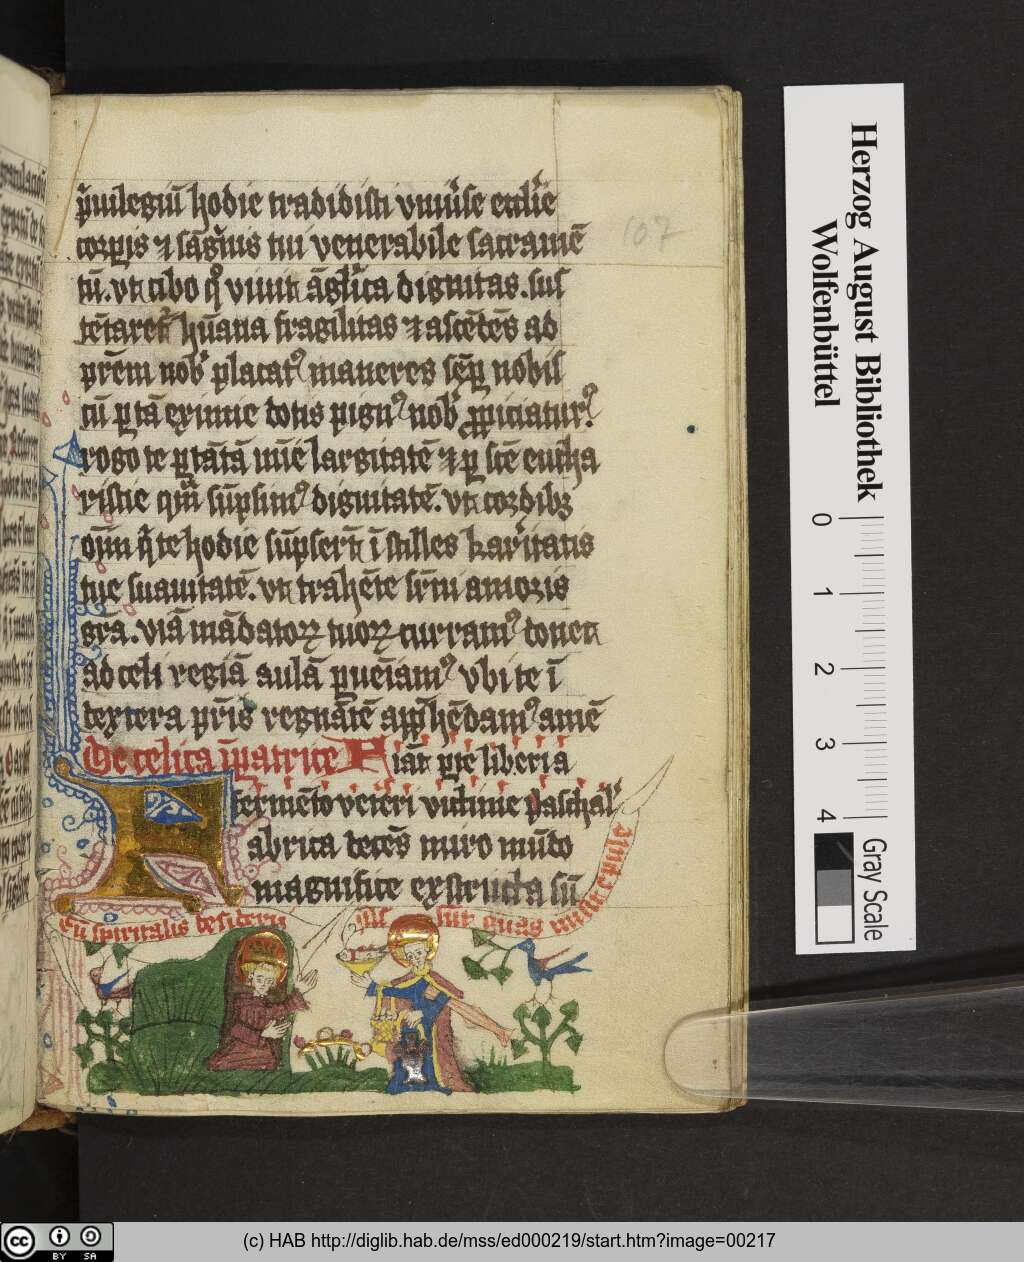 p̉uilegiū hodie tradidisti vniu̓se eccl̓ie
corp̲is ⁊ sāg̓nis tui venerabile sacramē
tū. vt cibo q̊ viuit āgl̓ica dignitas. sus
tētaret̉ hūana fragilitas ⁊ ascētēs ad
pr̄em nob̓ placat⁹ maneres sēp̲ nobis
cū p̲ tā eximie dotis pign⁹ nob̓ ꝓpiciatur⁹.
rogo te p̲ tātā mīe largitatē ⁊ p̲ sc̄e eucha
ristie quā sūpsim⁹ dignitatē. vt cordibꝫ
oīm q̄ te hodie sūpser̄t ī stilles karitatis
tue suauitatē. vt trahēte sēm amoris
gr̄a. viā mādatoꝝ tuoꝝ curram⁹ donec
ad celi regiā aulā p̲ueīam⁹ vbi te ī
dextera pr̄is regnātē app̲hēdam⁹ amē
De celica īp̲atrice Fiāt p̲te liberi a
fermēto veteri victime paschal̓
Fabrica decēs muro mūdo
magnifice exstructa sū
spiritalis desiderii
107
Herzog August Bibliothek
Wolfenbüttel
0 1 2 3 4
Gray Scale
CC BY SA
(c) HAB http://diglib.hab.de/mss/ed000219/start.htm?image=00217